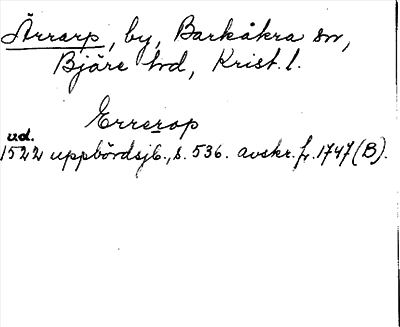 Ärrarp, by, Barkåkra sn,
Bjäre hd, Krist. l.
Errerop
ud.
1522 uppbördsjb., s. 536. avskr. fr. 1747 (B).